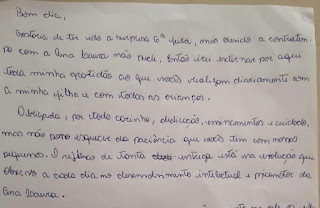 Bom dia,
Gostaria de ter ido a surpresa 6ª feira, mas devido a contratem-
po com a Ana Laura não pude. Então vou externar por aqui
toda minha gratidão ao que vocês realizam diariamente com
a minha filha e com todas as crianças.
Obrigada, por todo carinho, dedicação, ensinamentos e cuidado,
mas não posso esquecer da paciência que vocês tem com nossos
pequenos. O reflexo de tanta entrega está na evolução que
observo a cada dia no desenvolvimento intelectual e psicomotor da
Ana Laura.